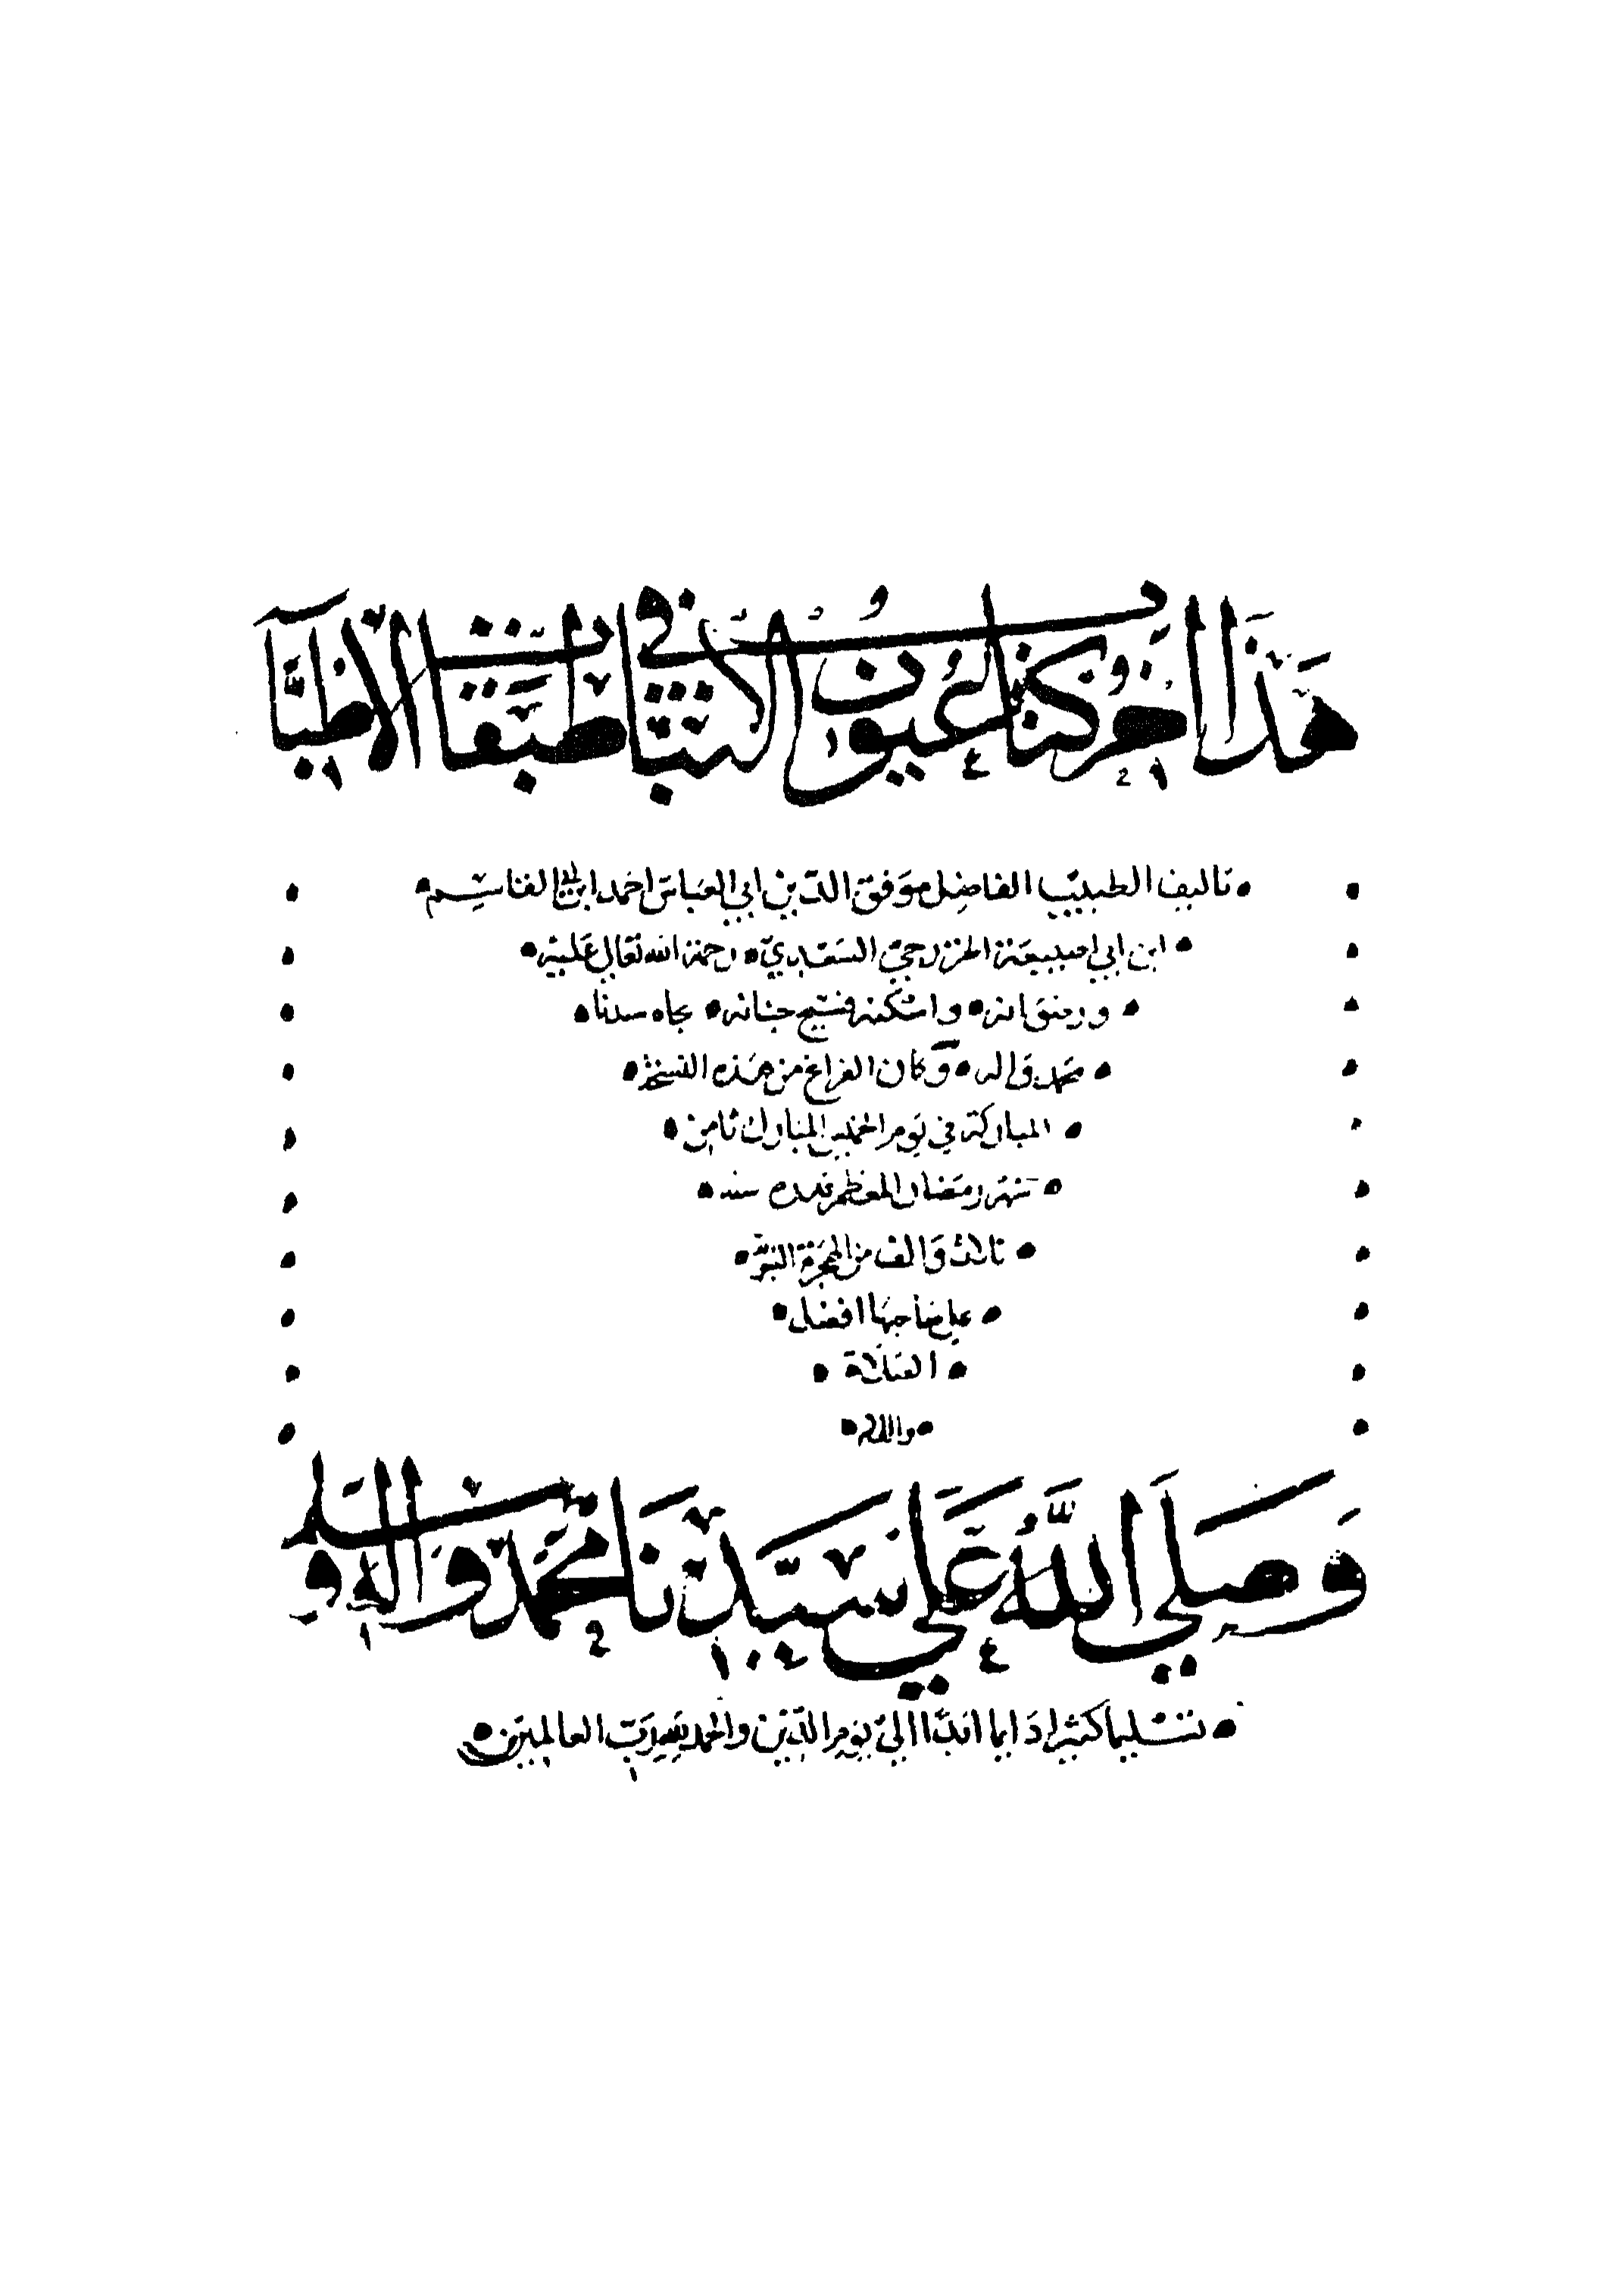 هَذَا اخر كتاب عُيون الانبا في طبقات الاطبَّآ
تاليف الطبيب الفاضِل موَفق الدّين ابي العبَاس احمد ابن ابي القاسِم
ابن ابي اصيبيعَة الخزرجيّ السَعَديّ رحمة الله تعَالي عَليْه
ورضوَانه واسْكنه فسَيح جنانه بجاه سيدنا
محمّد وَاله وَكان الفراغ من هَذه النسخة
المباركة في يَوم الخميس المبَارك ثامن
شهَر رمَضان المعَظم قدره سنة
ثلاث وَالف من الهجَرة النبَويّة
علي صَاحبهَا افضل
الصَلاة
والسلام
وَصَلي اللَّهُ عَلَي سَيّدنَا محُمَّد وَاله وَسَلم
تسْليما كثيرا دَايما ابَدًا الي يَوم الدّين والحمد لله رَبّ العالمين